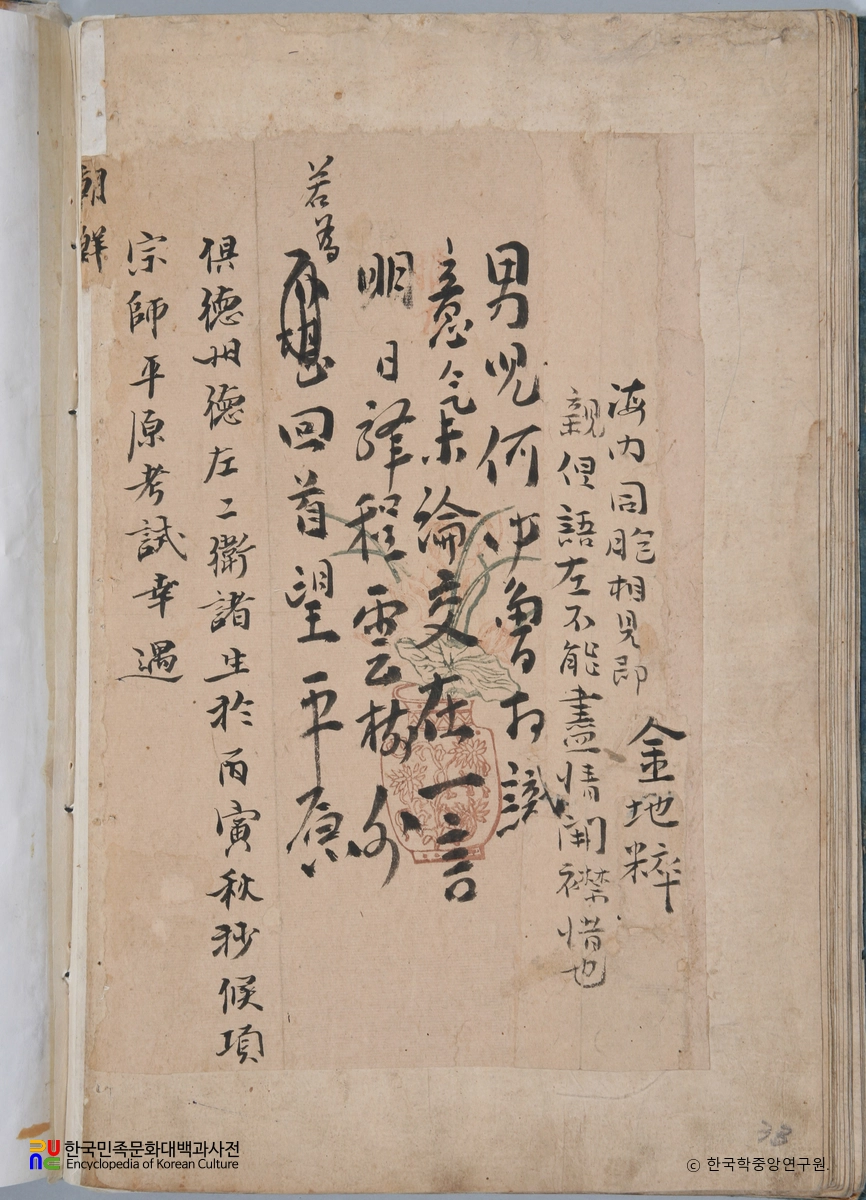 金地粹
海内同胞相見即
親但語左不能盡情開襟惜也
男兒何必曾相識
意氣論交在一言
明日驛程雲樹外
若為
回首望平原
俱德州德左二衛諸生於丙寅秋抄候項
宗師平原考試幸遇
朝鮮
33
한국민족문화대백과사전
Encyclopedia of Korean Culture
ⓒ 한국학중앙연구원.